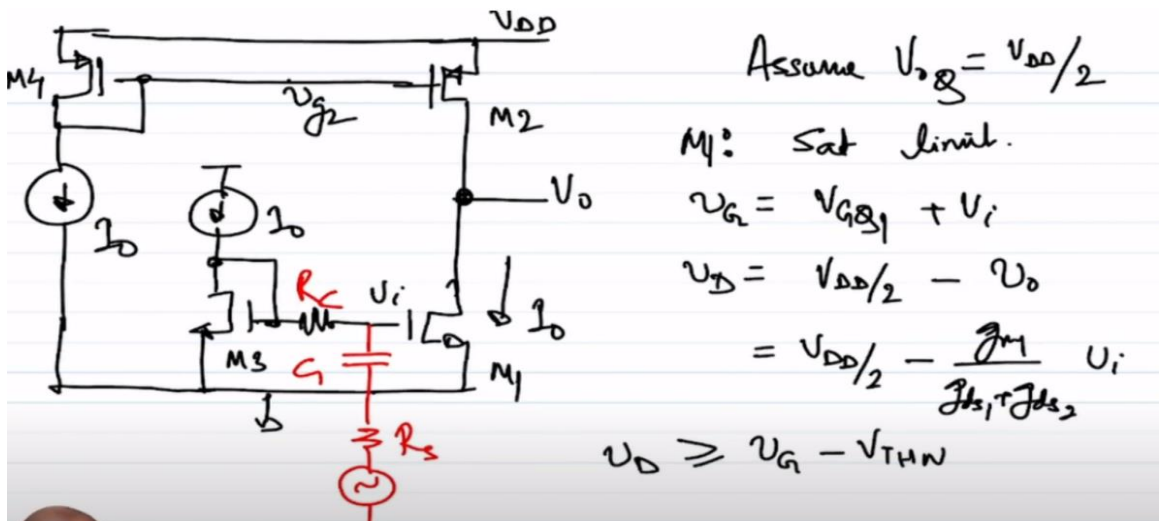 VDD
M4
vg2
M2
Vo
Io
Io
RC
Vi
Io
M3
C1
M1
Rs
Assume VoQ = VDD/2
M1: Sat limit.
vG = VGQ1 + Vi
vD = VDD/2 - vo
= VDD/2 - gm1/(gds1+gds2) vi
vD ≥ vG - VTHN